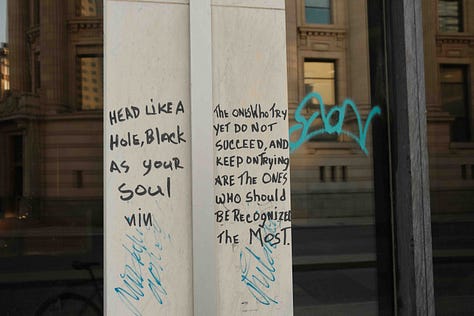 HEAD LIKE A
HOLE, BLACK
AS YOUR
SOUL
NIN
THE ONES WHO TRY
YET DO NOT
SUCCEED, AND
KEEP ON TRYING
ARE THE ONES
WHO SHOULD
BE RECOGNIZED
THE MOST.